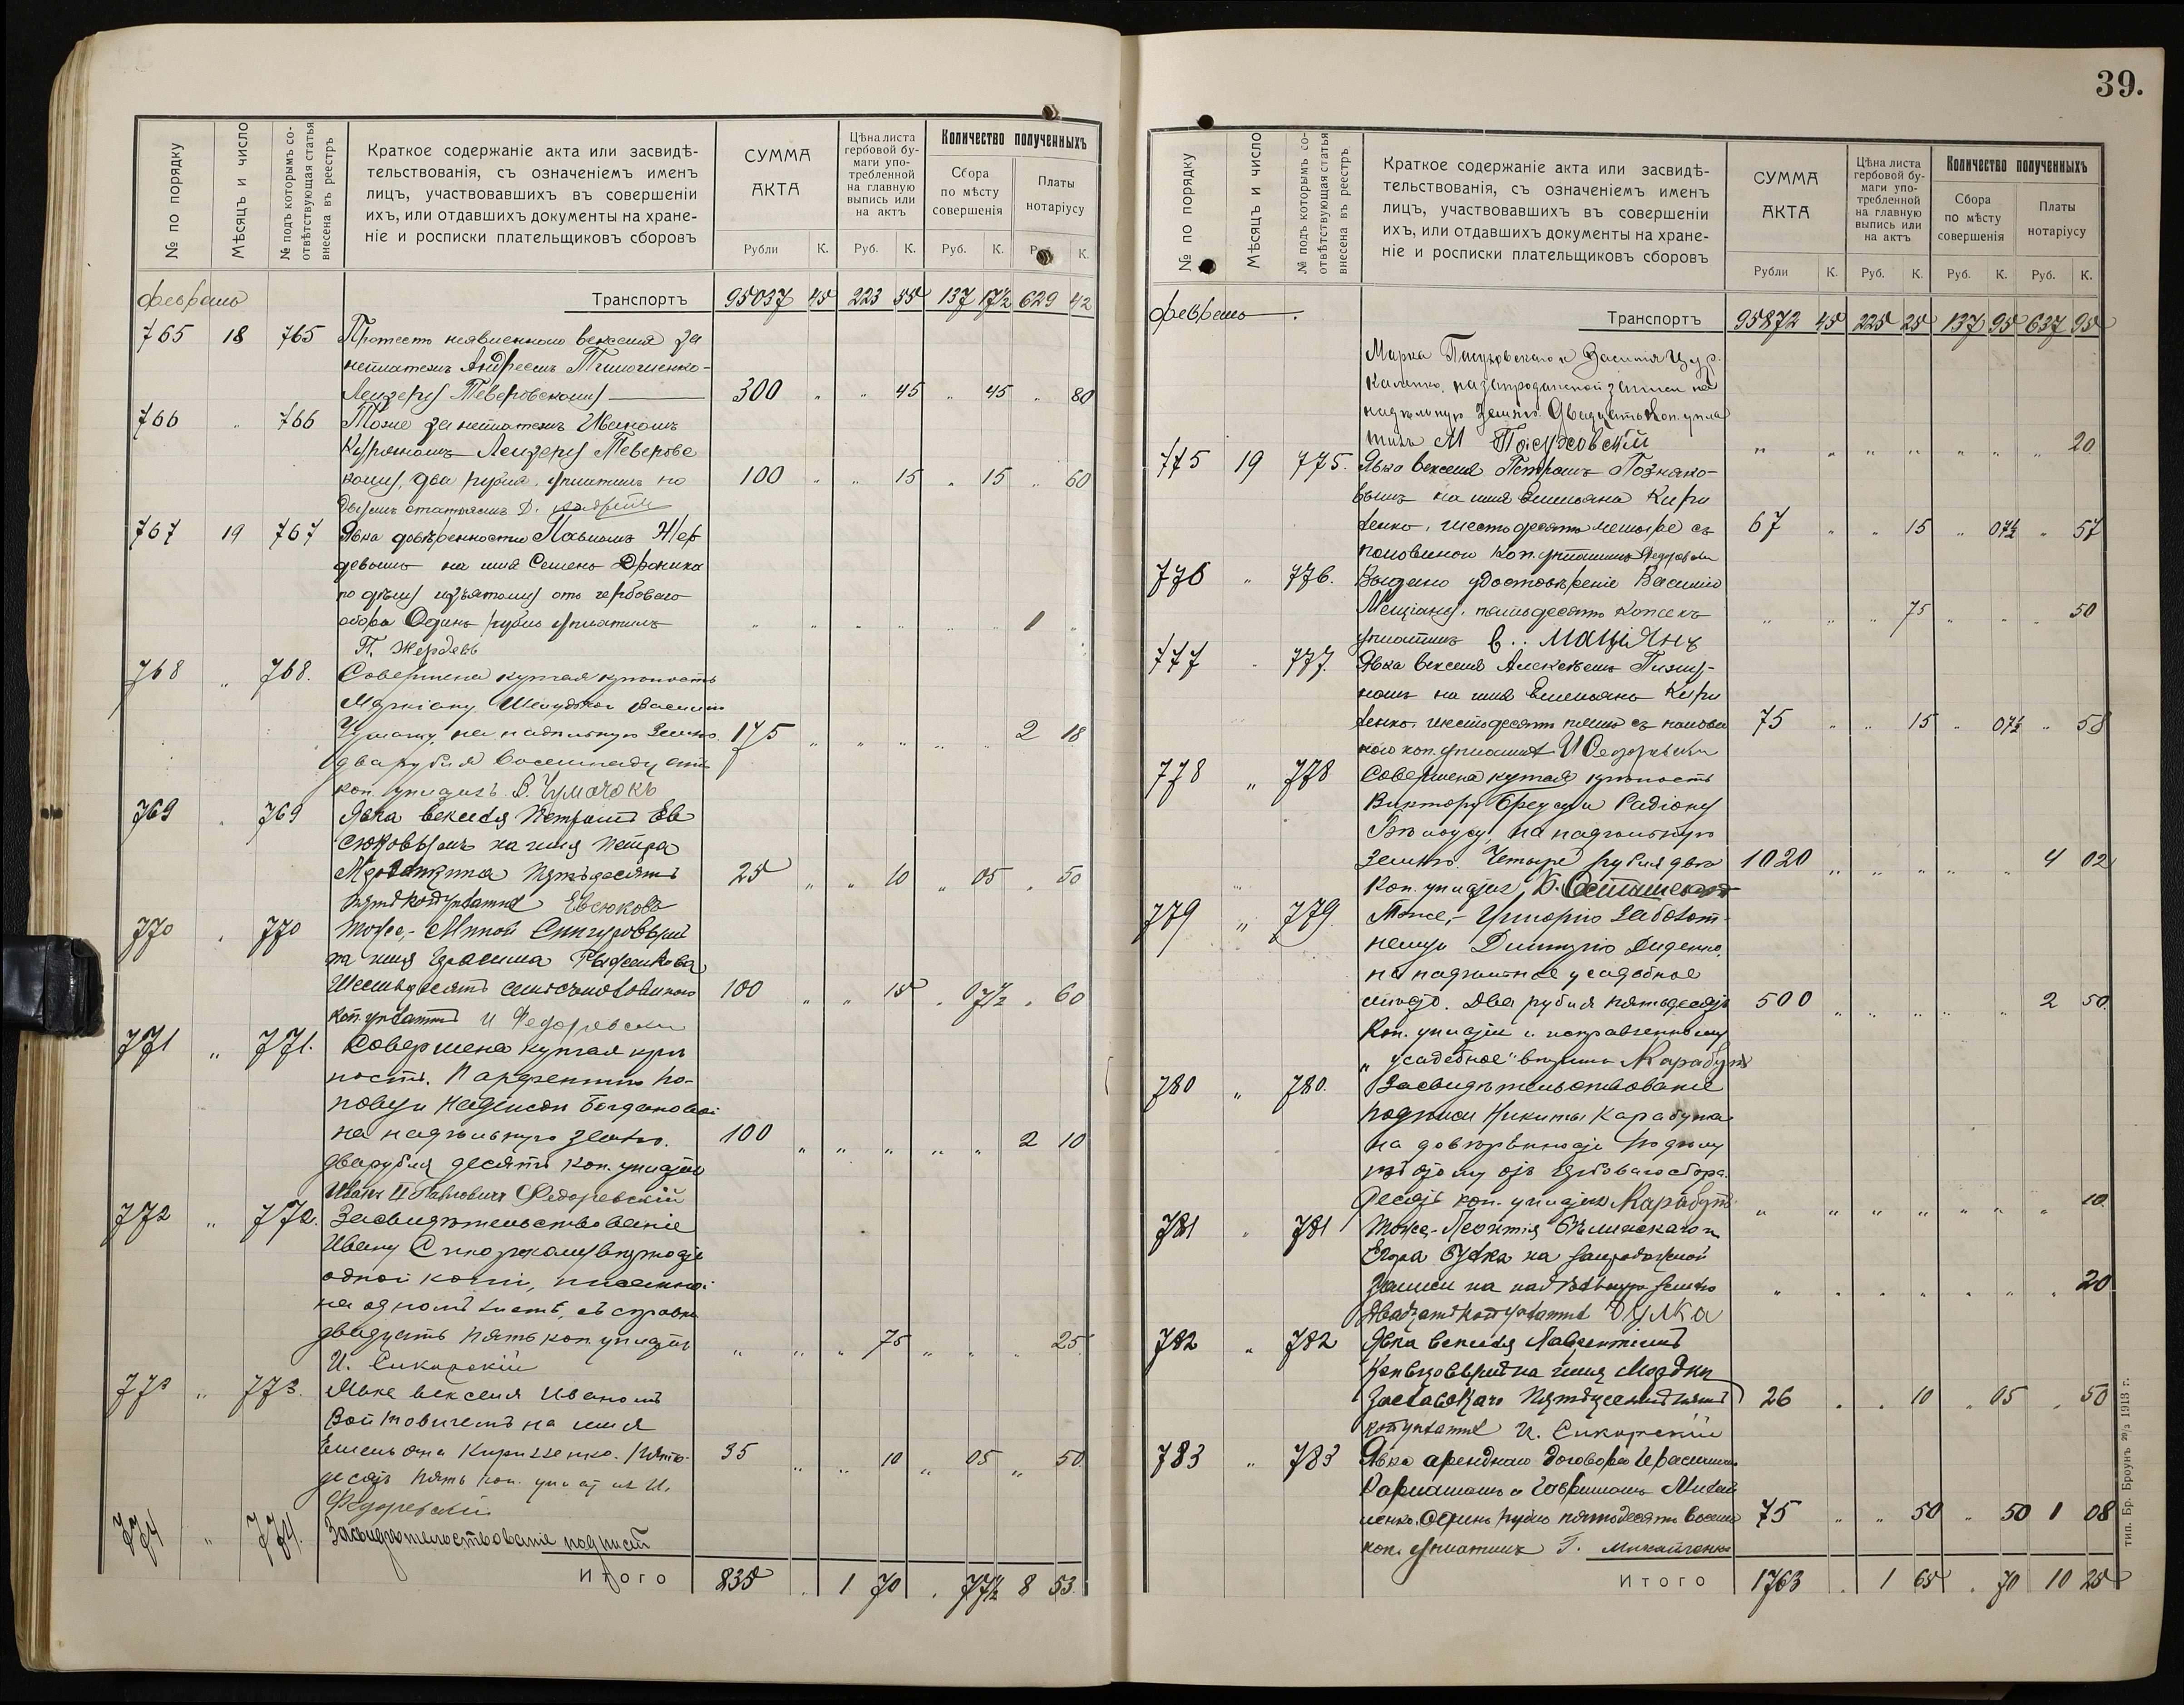 № по порядку
Мѣсяцъ и число
№ подъ которымъ со-
отвѣтствующая статья
внесена въ реестръ
Краткое содержаніе акта или засвидѣ-
тельствованія, съ означеніемъ именъ
лицъ, участвовавшихъ въ совершеніи
ихъ, или отдавшихъ документы на хране-
ніе и росписки плательщиковъ сборовъ
СУММА
АКТА
Рубли К.
Цѣна листа
гербовой бу-
маги упо-
требленной
на главную
выпись или
на актъ
Руб. К.
Количество полученныхъ
Сбора
по мѣсту
совершенія
Руб. К.
Платы
нотаріусу
К.
февраль Транспортъ 95037 45 223 55 137 17½ 629 42
765 18 765 Протестъ неявленнаго векселя за
неплатежъ Андреемъ Тимошенко-
Лейзеру Теверовскому 300 " " 45 " 45 " 80
766 " 766 Тоже за неплатежъ Иваномъ
Лейзеру Теверовс
кому, два рубля, уплатилъ по 100 " " 15 " 15 " 60
двумъ статьямъ
767 19 767 Явка довѣренности Павломъ Жер
девымъ на имя Семена Дроника
по дѣлу изъятому отъ гербоваго
сбора Одинъ рубль уплатилъ " " " " " " 1 "
П. Жердевъ
768 " 768. Совершена купчая крѣпость
на надѣльную землю. 175 " " " " " 2 18
два рубля восемнадцать
коп. уплатилъ В. Чумачокъ
769 " 769 Явка векселя Петромъ Ев
сюковымъ на имя Петра
Пятьдесятъ 25 " " 10 " 05 " 50
Евсюковъ
770 " 770 Тоже,- Миной Снигуровымъ
на имя Герасима Рыженкова
Шестьдесятъ семь съ половиною 100 " " 15 " 07½ " 60
коп. уплатилъ И Федоревски
771 " 771. Совершена купчая крѣ
пость, Парфентію По-
пову и Надежды Богдановой
на надѣльную землю. 100 " " " " " 2 10
два рубля десять коп. уплатилъ
Иванъ Павловичъ Федоревскій
772 " 772. Засвидѣтельствованіе
Ивану Сикорскому вѣрность
одной копіи, писанной
на одномъ листѣ, съ справки
двадцать пять коп уплатилъ " " " 75 " " " 25
И. Сикорскій
773 " 773. Явка векселя Иваномъ
Войтовичемъ на имя
Емельяна Кириченко. Пять- 35 " " 10 " 05 " 50
десятъ пять коп. уплатилъ И.
Федоревскій
774 " 774. Засвидѣтельствованіе подписи
Итого 835 . 1 70 . 77½ 8 53
39.
№ по порядку
Мѣсяцъ и число
№ подъ которымъ со-
отвѣтствующая статья
внесена въ реестръ
Краткое содержаніе акта или засвидѣ-
тельствованія, съ означеніемъ именъ
лицъ, участвовавшихъ въ совершеніи
ихъ, или отдавшихъ документы на хране-
ніе и росписки плательщиковъ сборовъ
СУММА
АКТА
Рубли К.
Цѣна листа
гербовой бу-
маги упо-
требленной
на главную
выпись или
на актъ
Руб. К.
Количество полученныхъ
Сбора
по мѣсту
совершенія
Руб. К.
Платы
нотаріусу
Руб. К.
февраль . Транспортъ 95872 45 225 25 137 95 637 95
Марка и Василія
на запродажной записи на
надѣльную землю. Двадцать коп. упла
тилъ М " " " " " " " 20
775 19 775. Явка векселя Петромъ Позняко-
вымъ на имя Емельяна Кири
ченко, шестьдесятъ четыре съ 67 " " 15 " 07½ " 57
половиною коп. уплатилъ Федоревски
776 " 776. Выдано удостовѣреніе Василію
Маціяну, пятьдесятъ копеекъ " " " 75 " " " 50
уплатилъ В. Маціянъ
777 " 777. Явка векселя Алексѣемъ
на имя Емельяна Кири
ченко. шестьдесятъ пять съ полови 75 " " 15 " 07½ " 58
ною коп. уплатилъ И Федоревски
778 " 778 Совершена купчая крѣпость
Виктору и Радіону
Бѣлоусу, на надѣльную
землю. Четыре рубля двѣ 1020 " " " " " 4 02
коп. уплатилъ
779 " 779. Тоже,- Григорію Заболот-
нему и Дмитрію Диденко,
на надѣльное усадебное
мѣсто. Два рубля пятьдесятъ 500 " " " " " 2 50
коп. уплатилъ и исправленному
„усадебное“ вѣрить Карабутъ
780 " 780. Засвидѣтельствованіе
подписи Никиты Карабута
на довѣренности по дѣлу
изъятому отъ гербоваго сбора.
Десять коп. уплатилъ Карабутъ " " " " " " " 10
781 " 781 Тоже,- Леонтія Бѣлинскаго и
Егора на запродажной
записи на надѣльную землю " " " " " " " 20
Двадцать коп уплатилъ
782 " 782 Явка векселя Лаврентіемъ
на имя
Заславскаго Пятьдесятъ пять 26 " " 10 " 05 " 50
коп уплатилъ И. Сикорскій
783 " 783 Явка аренднаго договора Герасимомъ
и Гавріиломъ Михай
ленко. Одинъ рубль пятьдесятъ восемь 75 " " 50 " 50 1 08
коп. уплатилъ Г. Михайленко
Итого 1763 . 1 65 . 70 10 25
тип. Бр. Броунъ 20/3 1913 г.